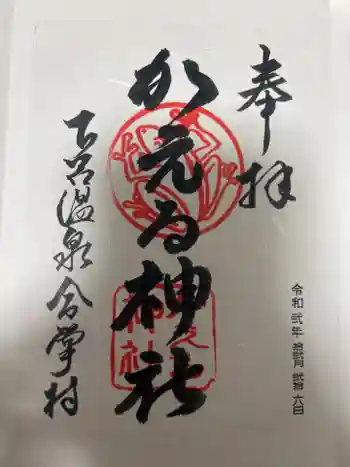 奉拝
かえる神社
下呂温泉合掌村
令和 弐年 拾弐月 弐拾六日